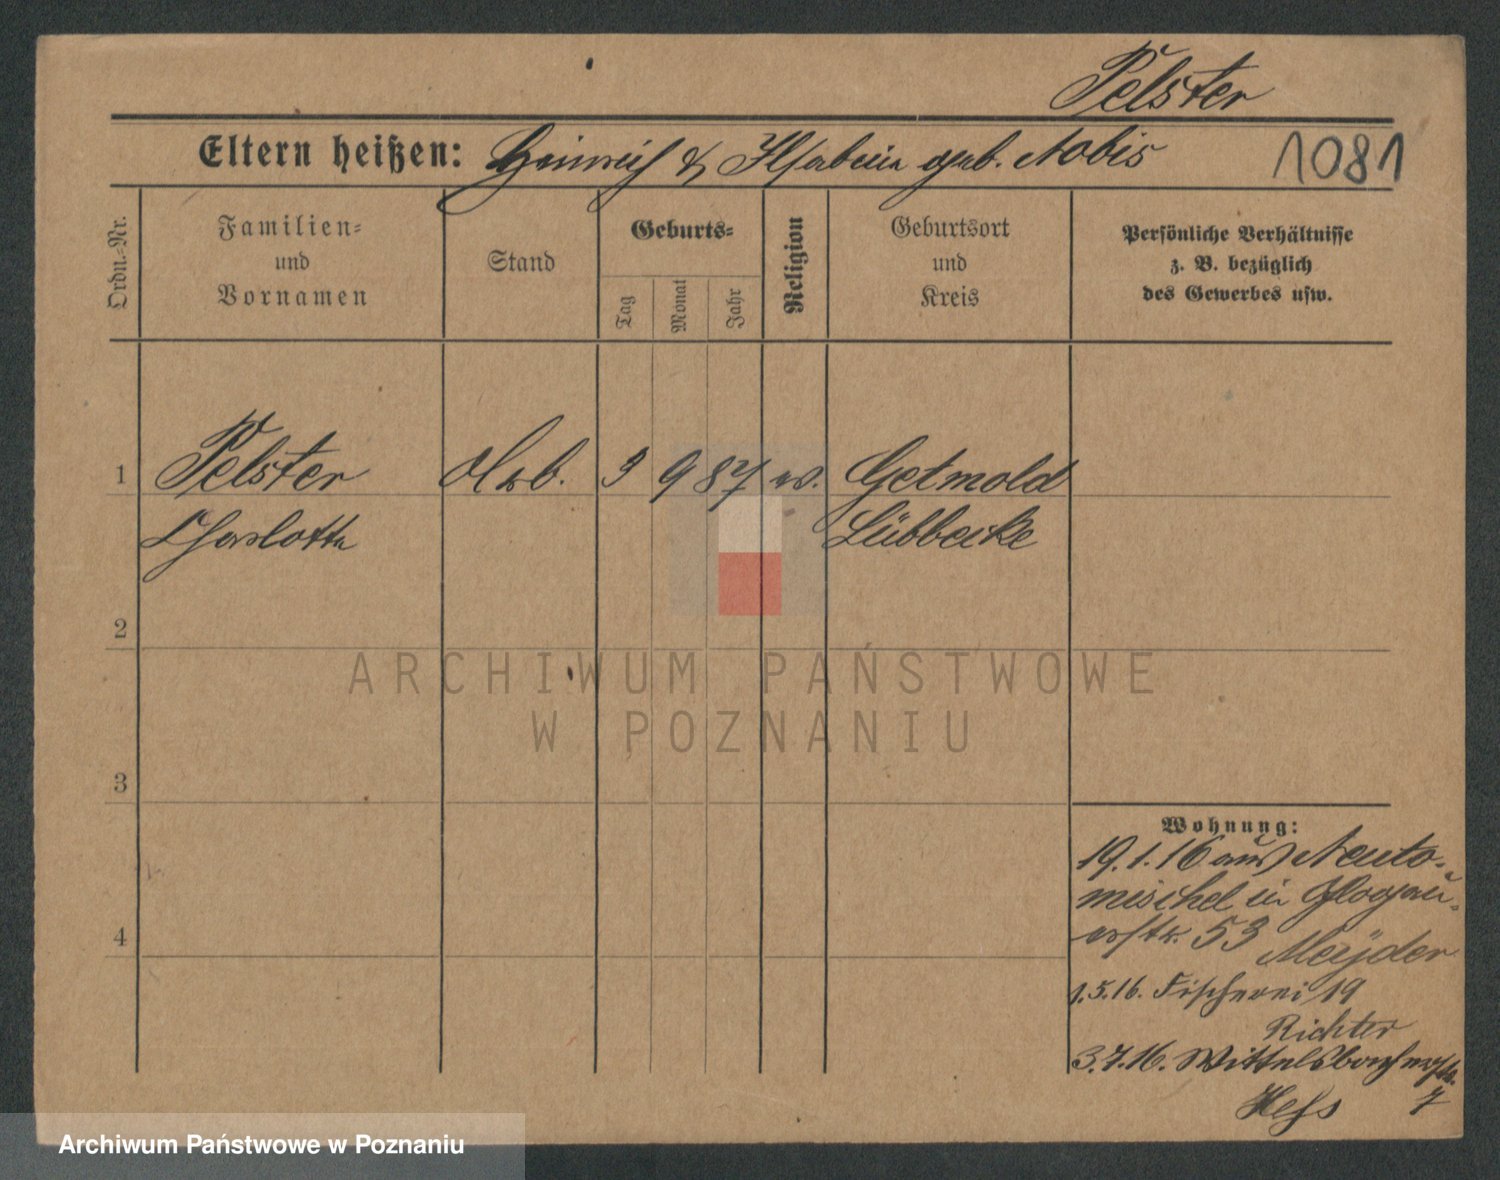 Pelster
Eltern heißen: Heinrich & Ilsabein geb. Nobis
1081
Ordn.-Nr.
Familien-
und
Vornamen
Stand
Geburts-
Tag
Monat
Jahr
Religion
Geburtsort
und
Kreis
Persönliche Verhältnisse
z. B. bezüglich
des Gewerbes usw.
1 Pelster 3 9 87 ev. Getmold
Charlotte Lübbecke
2
3
4
ARCHIWUM PAŃSTWOWE
W POZNANIU
Wohnung:
19.1.16 aus Neuto-
mischel in Glogau-
erstr. 53 Meyder
1.5.16. Fischerei 19
Richter
3.7.16. Wittelsbacherstr.
7
Hess
Archiwum Państwowe w Poznaniu